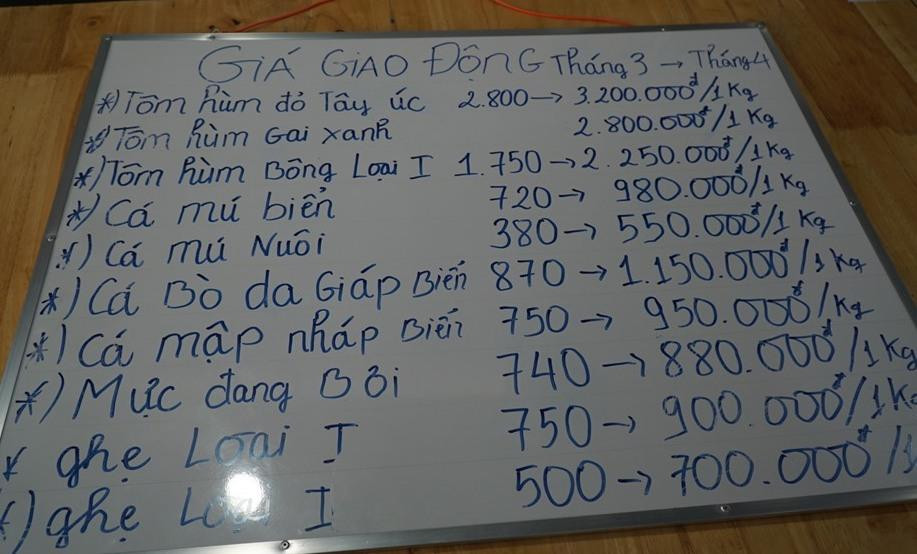 GIÁ GIAO ĐỘNG Tháng 3 → Tháng 4
*) Tôm hùm đỏ Tây úc 2.800 → 3.200.000đ/1 Kg
*) Tôm hùm Gai xanh 2.800.000đ/1 Kg
*) Tôm hùm Bông Loại I 1.750 → 2.250.000đ/1 Kg
*) Cá mú biển 720 → 980.000đ/1 Kg
*) Cá mú Nuôi 380 → 550.000đ/1 Kg
*) Cá Bò da Giáp Biển 870 → 1.150.000đ/1 Kg
*) Cá mập nháp Biển 750 → 950.000đ/Kg
*) Mực đang Bơi 740 → 880.000đ/1 Kg
* ghẹ Loại I 750 → 900.000đ/1K
*) ghẹ Loại I 500 → 700.000đ/1